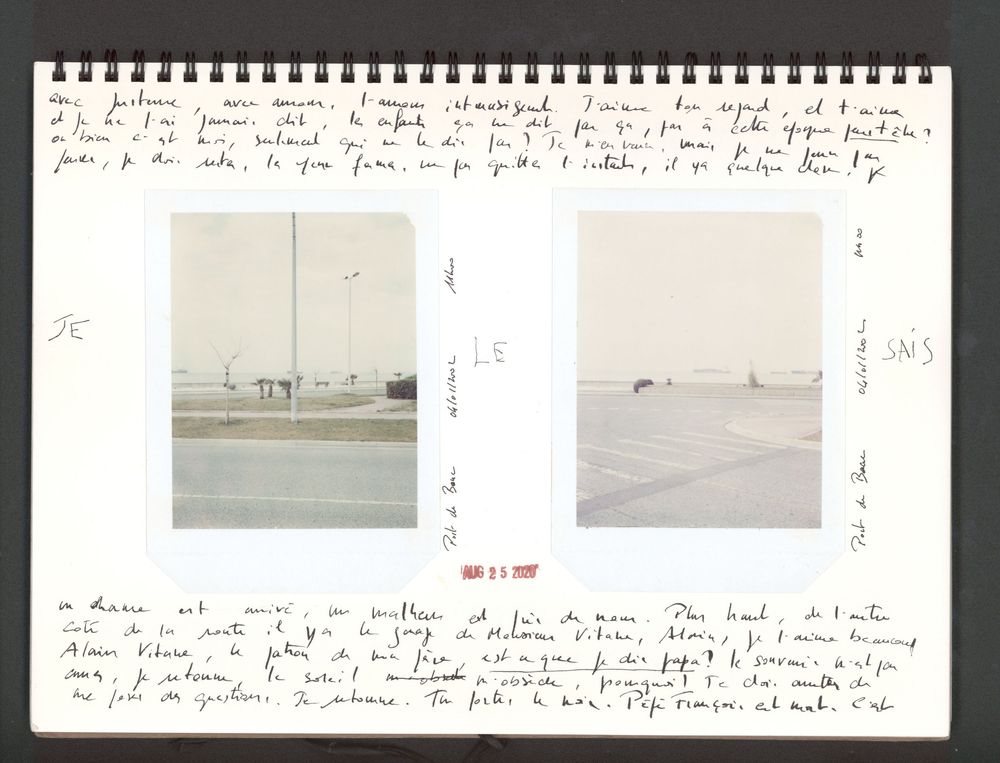 avec justesse, avec amour, l'amour intransigeant. J'aime ton regard, et t'aime
et je ne l'ai jamais dit, les enfants ça ne dit pas ça, pas à cette époque peut-être?
ou bien c'est moi, seulement qui ne le dis pas? Je m'en veux, mais je ne peux pas
je dois rester, la ne pas quitter l'instant, il y a quelque chose!
JE
LE
SAIS
Port de Bouc 04/01/2002 11h00
Port de Bouc 04/01/2002
AUG 25 2020
un drame est arrivé, un malheur est près de nous. Plus haut, de l'autre
coté de la route il y a le garage de Monsieur Vitane, Alain, je l'aime beaucoup
Alain Vitane, le patron de mon père, est ce que je dis papa? le souvenir n'est pas
je retourne, le soleil m'obsède, pourquoi! Je dois arrêter de
me poser des questions. Je retourne. Tu portes le noir. Pépé François est mort. C'est